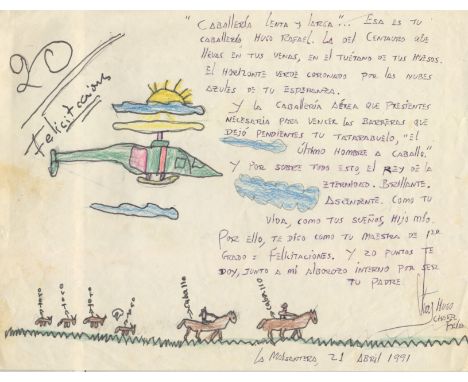 20
Felicitaciones
"Caballería lenta y larga"... Esa es tu
caballería Hugo Rafael. La del Centauro que
llevas en tus venas, en el tuétano de tus huesos.
El horizonte verde coronado por las nubes
azules de tu esperanza.
Y la caballería aérea que presientes
necesaria para vencer las barreras que
dejó pendientes tu tatarabuelo, "el
último hombre a caballo."
Y por sobre todo esto, el rey de la
eternidad. Brillante.
Ascendente. Como tu
vida, como tus sueños, hijo mío.
Por ello, te digo como tu maestra de 1er
Grado = Felicitaciones. Y 20 puntos te
doy, junto a mi alborozo interno por ser
tu padre.
Hugo
Chávez
Frías
toro
toro
toro
toro
caballo
caballo
La Marqueseña, 21 Abril 1991